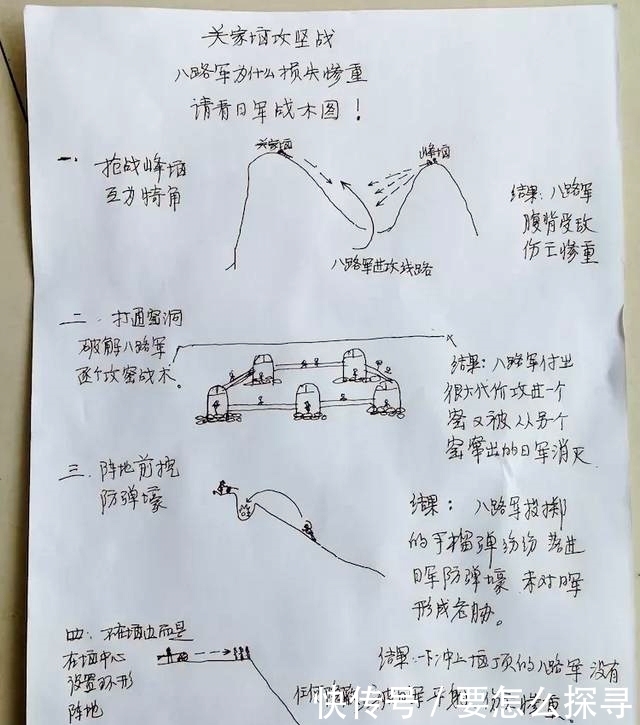 关家垴攻坚战
八路军为什么损失惨重
请看日军战术图！
一、抢战峰垴
互为犄角
关家垴
峰垴
八路军进攻线路
结果：八路军
腹背受敌
伤亡惨重
二、打通窑洞
破解八路军
逐个攻窑战术。
结果：八路军付出
很大代价攻进一个
窑又被从另个
窑窜出的日军消灭
三、阵地前挖
防弹壕
结果：八路军投掷
的手榴弹纷纷落进
日军防弹壕 未对日军
形成危胁。
四、不在垴边而是
在垴中心
设置环形
阵地
结果：一下冲上垴顶的八路军没有
惨重
快传号/要怎么探寻